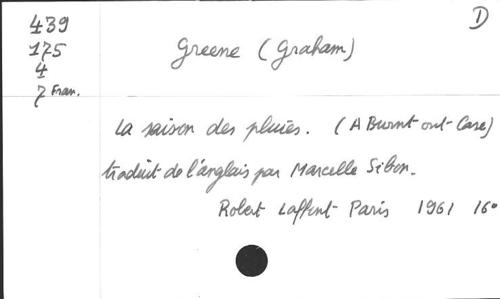 439
175
4
7 Fran.
D
Greene (Graham)
La saison des pluies. (A Burnt out Case)
traduit de l'anglais par Marcelle Sibon.
Robert Laffont Paris 1961 16°